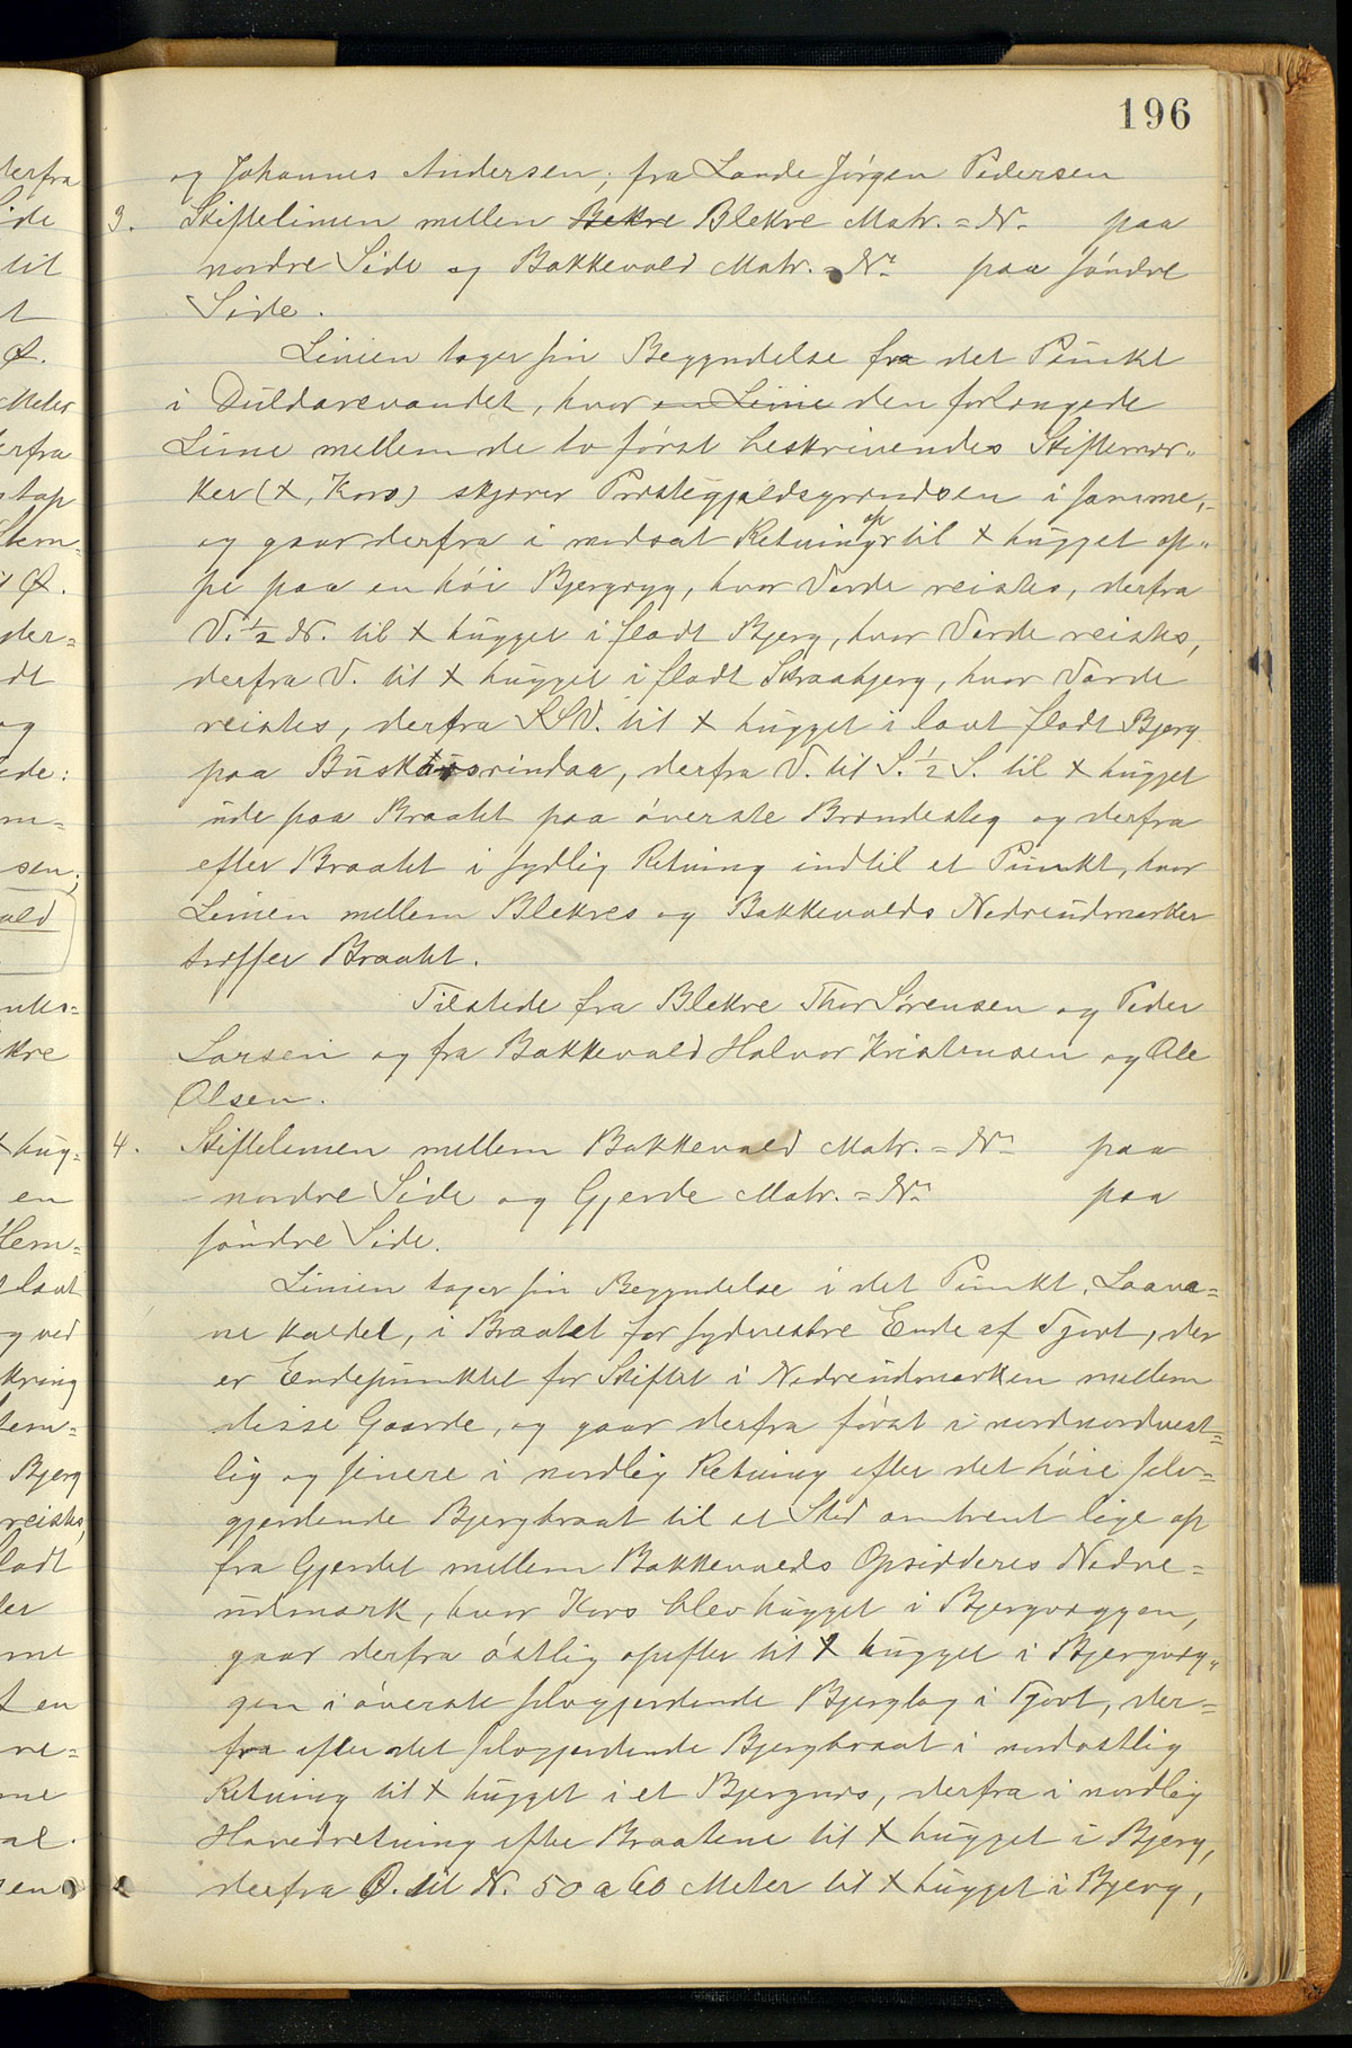 196
og Johannes Andersen; fra Lande Jörgen Pedersen
3. Skiftelinien mellem Bekre Blekre Matr.=No paa
nordre Side og Bakkevold Matr.=No paa söndre
Side.
Linien tager sin Begyndelse fra det Punkt
i Duldarevandet, hvor en Linie den forlængede
Linie mellem de to först beskrivendes Skiftemær„
ker (X, Kors) skjærer Præstegjeldsgrændsen i samme,
og gaar derfra i modsat Retning op til X hugget op„
pe paa en höi Bjergryg, hvor Varde reistes, derfra
V. ½ N. til X hugget i fladt Bjerg, hvor Varde reistes,
derfra V. til X hugget i fladt Skraabjerg, hvor Varde
reistes, derfra SSV. til X hugget i lavt fladt Bjerg
paa rindaa, derfra V. til S. ½ S. til X hugget
ude paa Braatet paa överste Brændesteg og derfra
efter Braatet i sydlig Retning indtil et Punkt, hvor
Linien mellem Blekres og Bakkevolds Nedreudmarker
træffer Braatet.
Tilstede fra Blekre Thor Sörensen og Peder
Larsen og fra Bakkevold Halvor Kristensen og Ole
Olsen.
4. Skiftelinien mellem Bakkevold Matr.=No paa
nordre Side og Gjerde Matr.=No paa
söndre Side.
Linien tager sin Begyndelse i det Punkt, Laava=
ne kaldet, i Braatet for sydvestre Ende af Tjovt, der
er Endepunktet for Skiftet i Nedreudmarken mellem
disse Gaarde, og gaar derfra först i nordnordvest=
lig og senere i nordlig Retning efter det höie selv=
gjerdende Bjergbraat til et Sted omtrent lige op
fra Gjerdet mellem Bakkevolds Opsidderes Nedre=
udmark, hvor Kors blev hugget i Bjergvæggen,
gaar derfra östlig opefter til X hugget i Bjergvæg„
gen i överste selvgjerdende Bjerglag i Tjovt, der=
fra efter det selvgjerdende Bjergbraat i nordostlig
Retning til X hugget i et Bjergnæs, derfra i nordlig
Hovedretning efter Braatene til X hugget i Bjerg,
derfra Ö. til N. 50 a 60 Meter til X hugget i Bjerg,